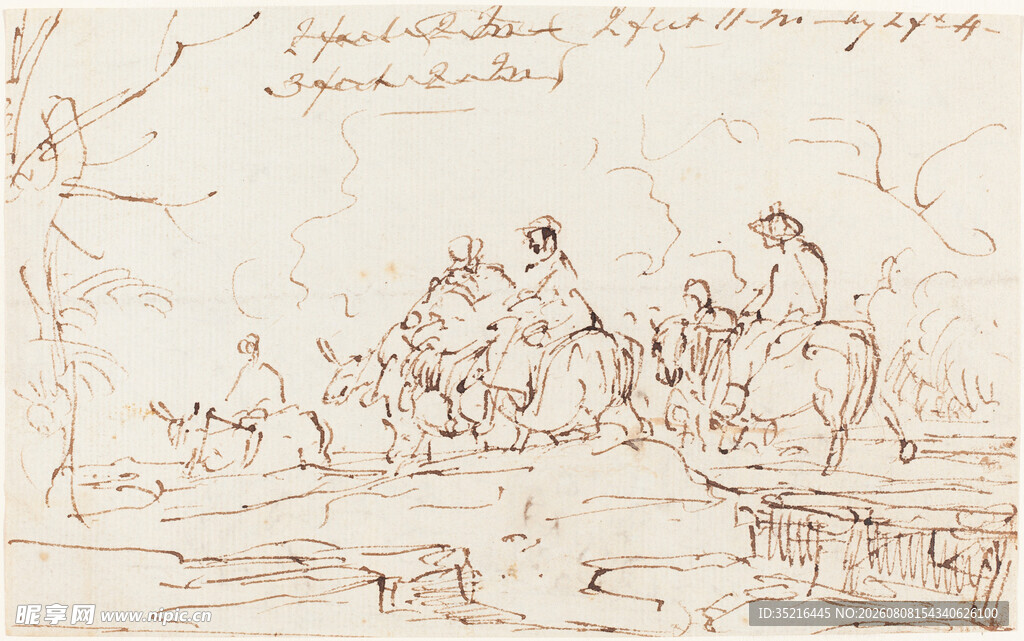 2 feet 2 In 2 feet 11 - In - by 2 f 4 -
3 feet 2 - In
昵享网 www.nipic.cn
ID:35216445 NO:20260808154340626100